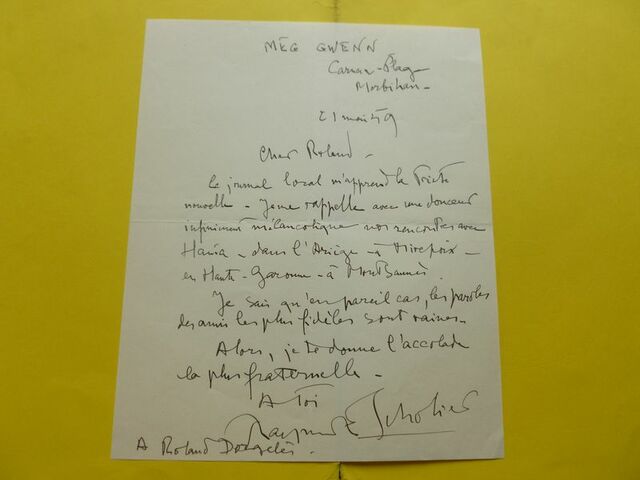 MEG GWENN
Carnac-Plage
Morbihan -
Cher Roland -
Le journal local m'apprend la triste
nouvelle - Je me rappelle avec une douceur
infiniment mélancolique nos rencontres avec
Hania - dans l'Ariège - à Mirepoix -
en Haute-Garonne - à Montsaunès.
Je sais qu'en pareil cas, les paroles
des amis les plus fidèles sont vaines -
Alors, je te donne l'accolade
la plus fraternelle -
A Toi
Raymond Escholier
A Roland Dorgelès.